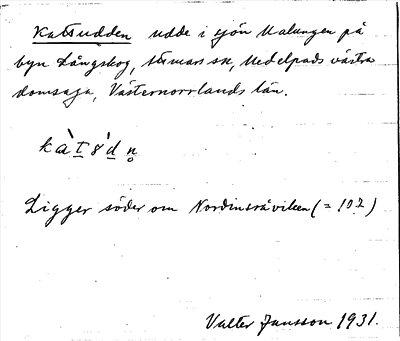 Kattsudden udde i sjön Malungen på
byn Långskog, Stöde sn, Medelpads västra
domsaga, Västernorrlands län.
Ligger söder om Nordinsråviken (= 107)
Valter Jansson 1931.